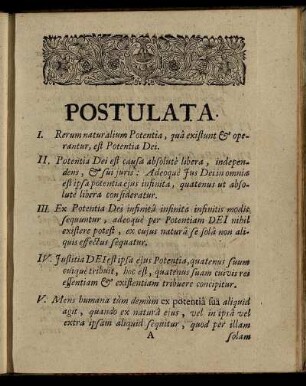 POSTULATA.
I. Rerum naturalium Potentia, quâ existunt & ope-
rantur, est Potentia Dei.
II. Potentia Dei est causa absolutè libera, indepen-
dens, & sui juris: Adeoque Jus Dei in omnia
est ipsa potentia ejus infinita, quatenus ut abso-
lutè libera consideratur.
III. Ex Potentia Dei infinitâ infinita infinitis modis
sequuntur, adeoque per Potentiam DEI nihil
existere potest, ex cujus naturâ se solâ non ali-
quis effectus sequatur.
IV. Justitia DEI est ipsa ejus Potentia, quatenus suum
cuique tribuit, hoc est, quatenus suam cuivis rei
essentiam & existentiam tribuere concipitur.
V. Mens humana tùm demùm ex potentiâ suâ aliquid
agit, quando ex naturâ ejus, vel in ipsâ vel
extra ipsam aliquid sequitur, quod per illam
A solam